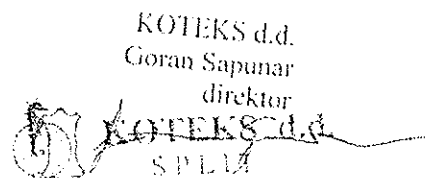 KOTEKS d.d.
Goran Sapunar
direktor
KOTEKS d.d.
SPLIT